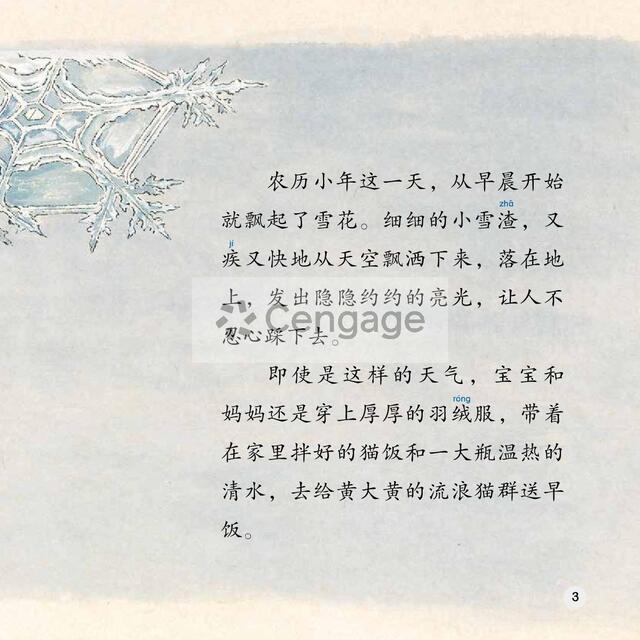 农历小年这一天，从早晨开始
zhā
就飘起了雪花。细细的小雪渣，又
jí
疾又快地从天空飘洒下来，落在地
上，发出隐隐约约的亮光，让人不
Cengage
忍心踩下去。
即使是这样的天气，宝宝和
róng
妈妈还是穿上厚厚的羽绒服，带着
在家里拌好的猫饭和一大瓶温热的
清水，去给黄大黄的流浪猫群送早
饭。
3